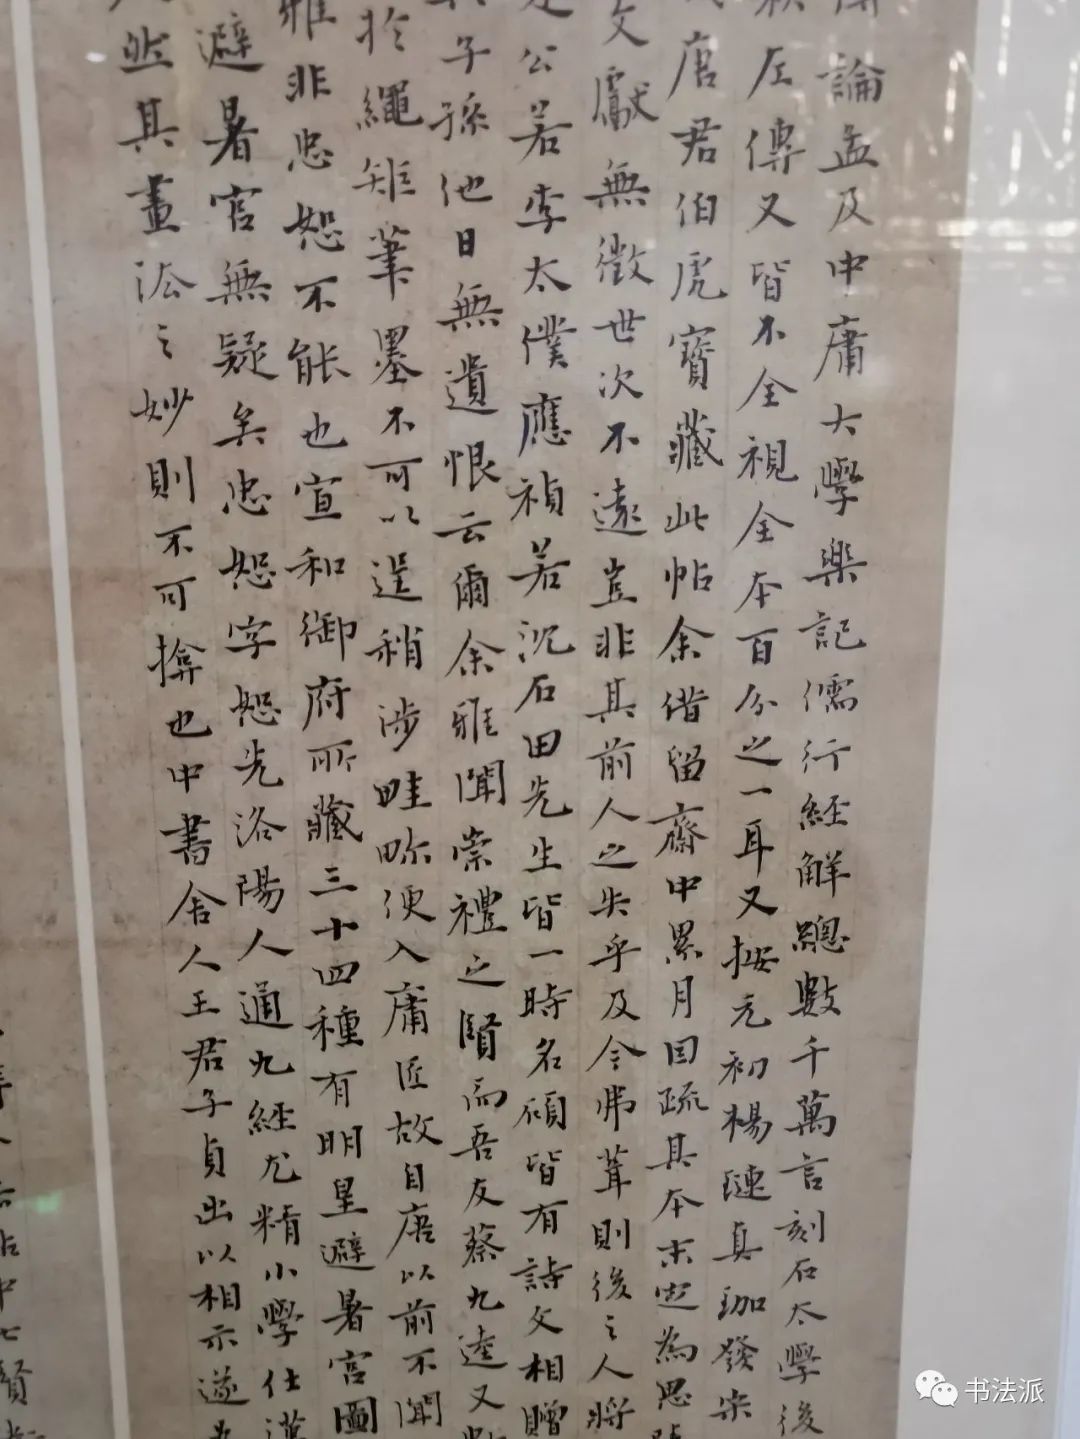 論孟及中庸大學樂記儒行經解總數千萬言刻石太學後
左傳又皆不全視全本百分之一耳又按元初楊璉真珈發宋
唐君伯虎寶藏此帖余借留齋中累月因疏其本末如此為思
文獻無徵世次不遠豈非其前人之失乎及今弗葺則後之人將
公若李太僕應禎若沈石田先生皆一時名碩皆有詩文相贈
子孫他日無遺恨云爾余雅聞崇禮之賢而吾友蔡九逵又
於繩矩筆墨不可以逞稍涉畦畛便入庸匠故自唐以前不聞
雅非忠恕不能也宣和御府所藏三十四種有明皇避暑宮圖
避暑宮無疑矣忠恕字恕先洛陽人通九經尤精小學仕漢
然其畫法之妙則不可揜也中書舍人王君子貞出以相示遂
书法派